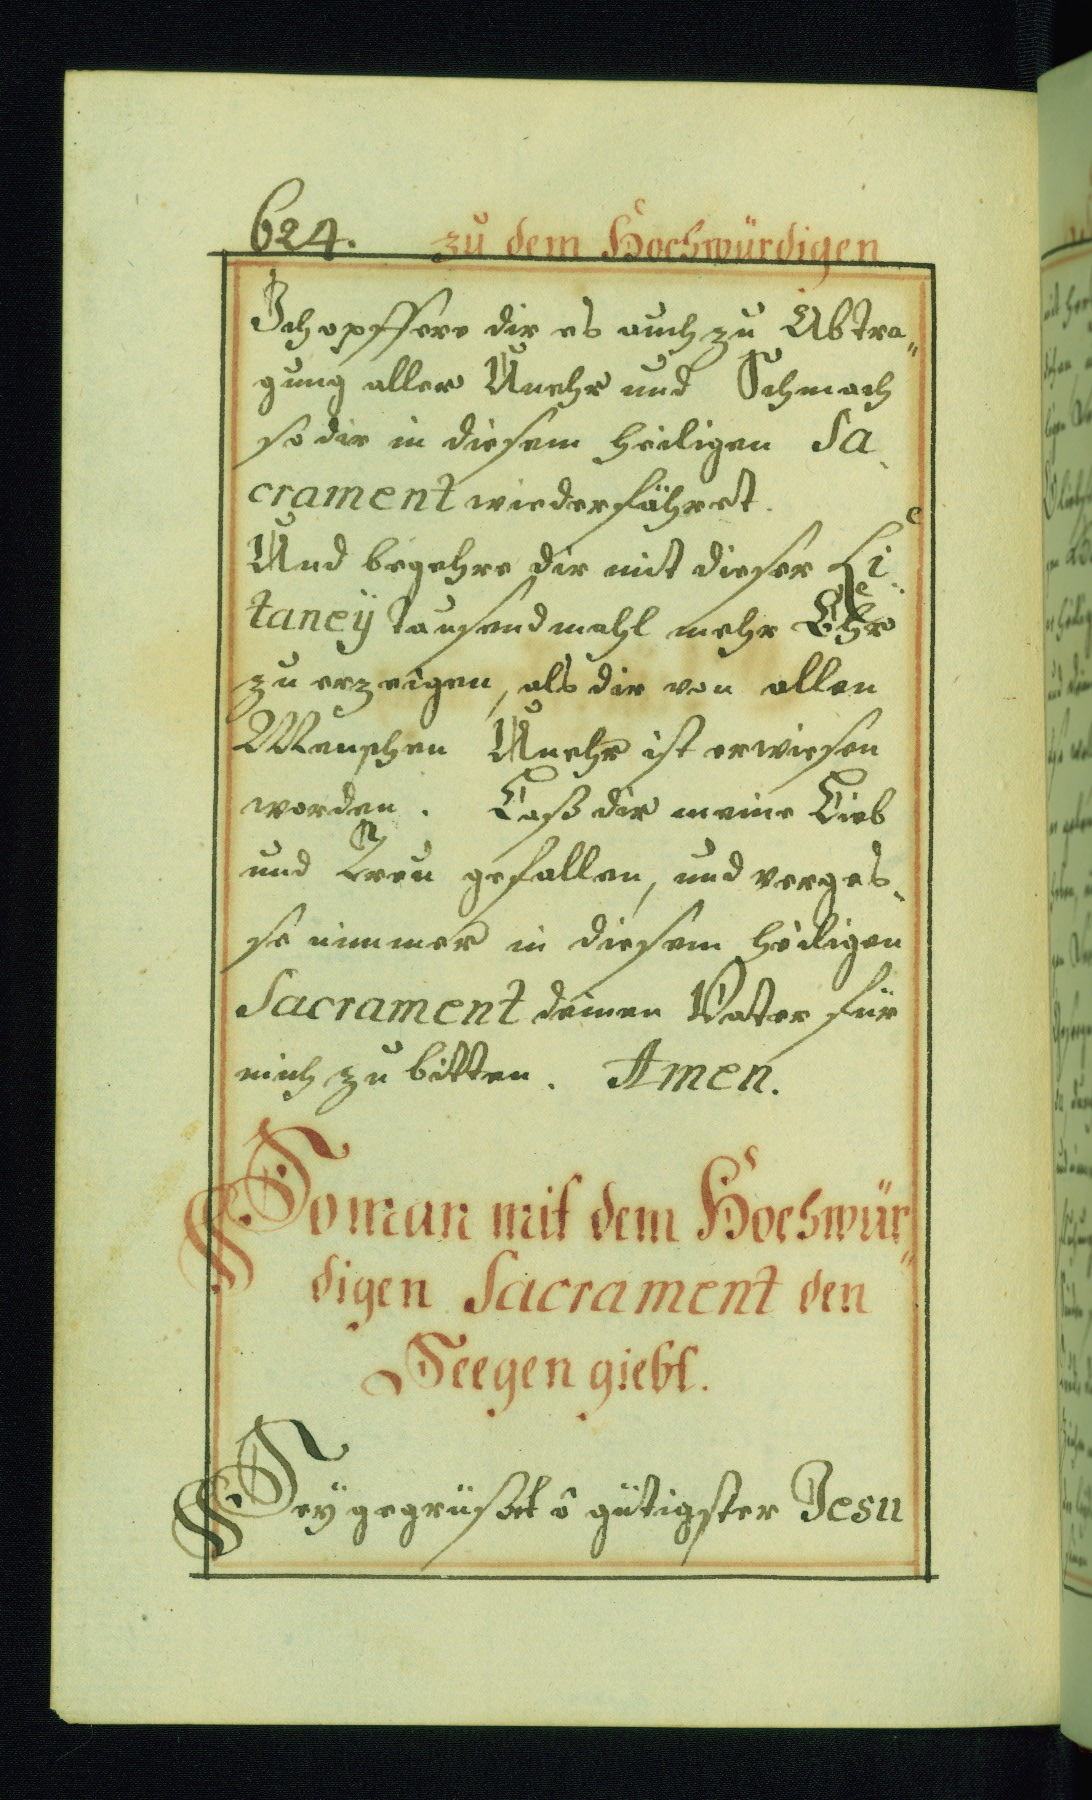 624. zu dem Hochwürdigen
Ich opffere dir es auch zu Abtra„
gung aller Unehr und Schmach
so dir in diesem heiligen Sa„
crament wiederfähret.
Und begehre dir mit dieser Li„
taneÿ tausendmahl mehr Ehre
zu erzeigen, als dir von allen
Menschen Unehr ist erwiesen
worden. Laß dir meine Lieb
und Treu gefallen, und verges„
se nimmer in diesem heiligen
Sacrament deinen Vater für
mich zu bitten. Amen.
So man mit dem Hochwür„
digen Sacrament den
Seegen giebt.
Seÿ gegrüset ô gütigster Jesu